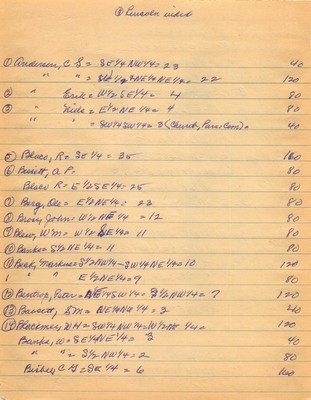 ① Lincoln
① Anderson, C S = SE¼NW¼ = 23 40
" " = ½ NE¼NE¼ = 22 120
② " Erik = W½SE¼ = 4 80
③ " Nick = E½NE¼ = 4 80
" " = SW¼SW¼ = 3 (Church, Pars. Com). 40
⑤ Blace, R = SE¼ = 35 160
⑥ A P = 80
Blace R = E½SE¼ = 25 80
⑦ Berg, Ole = E½NE¼ = 23 80
⑧ John = W½NE¼ = 12 80
⑨ Wm = W½ NE¼ = 11 80
⑩ Banks = S½NE¼ = 11 80
⑪ S½NW¼ - SW¼NE¼ = 10 120
" " E½NW¼ = 9 80
⑫ Peter = NE¼SW¼ = S½NW¼ = 7 120
⑬ Bassett, SM = NW¼NW¼ = 2 40
⑭ Blackmer, WH = SW¼NW¼ = W½NE¼ = 120
Banks, W = SE¼NE¼ = 3 40
" " = S½NW¼ = 2 80
C G = SE¼ = 6 160